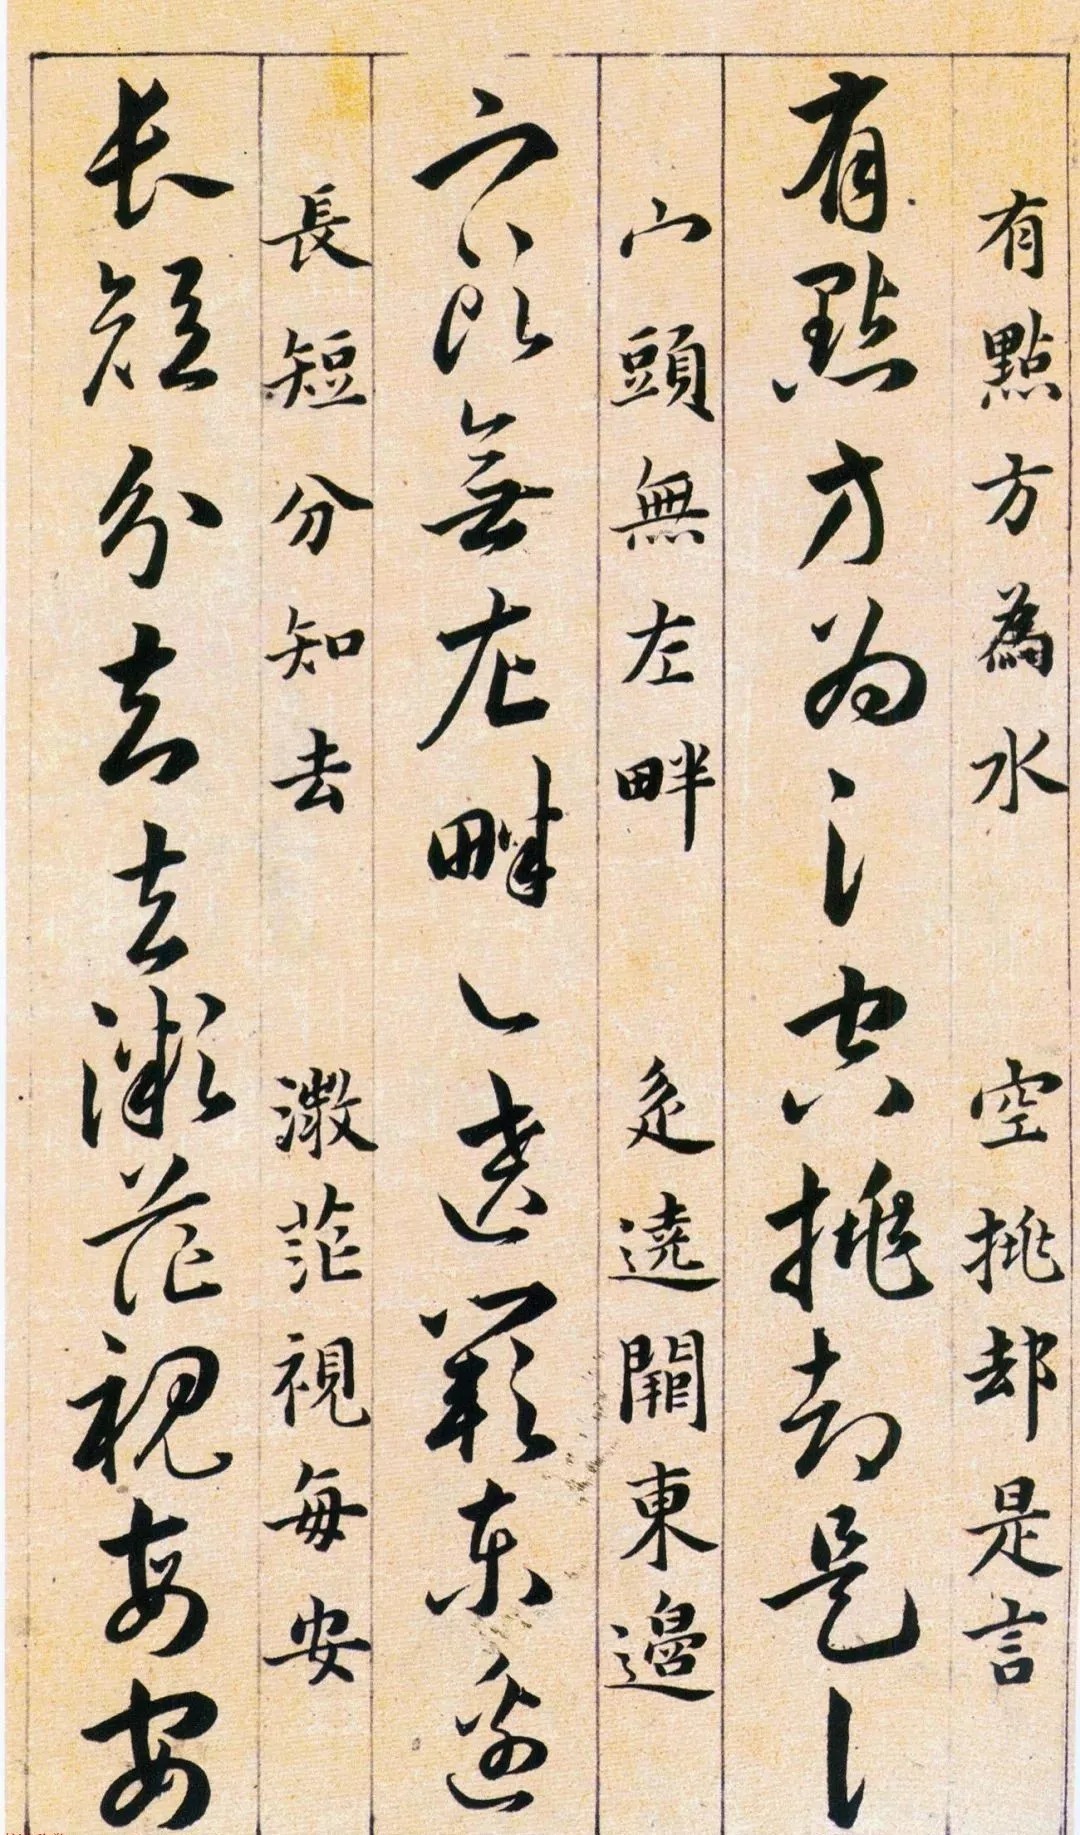 有點方為水 空挑却是言
有點方為氵空挑却是讠
宀頭無左畔 辵遶閞東邊
宀頭無左畔辶遶閞東邊
長短分知去 漖茫視每安
长短分去去漖茫視每安